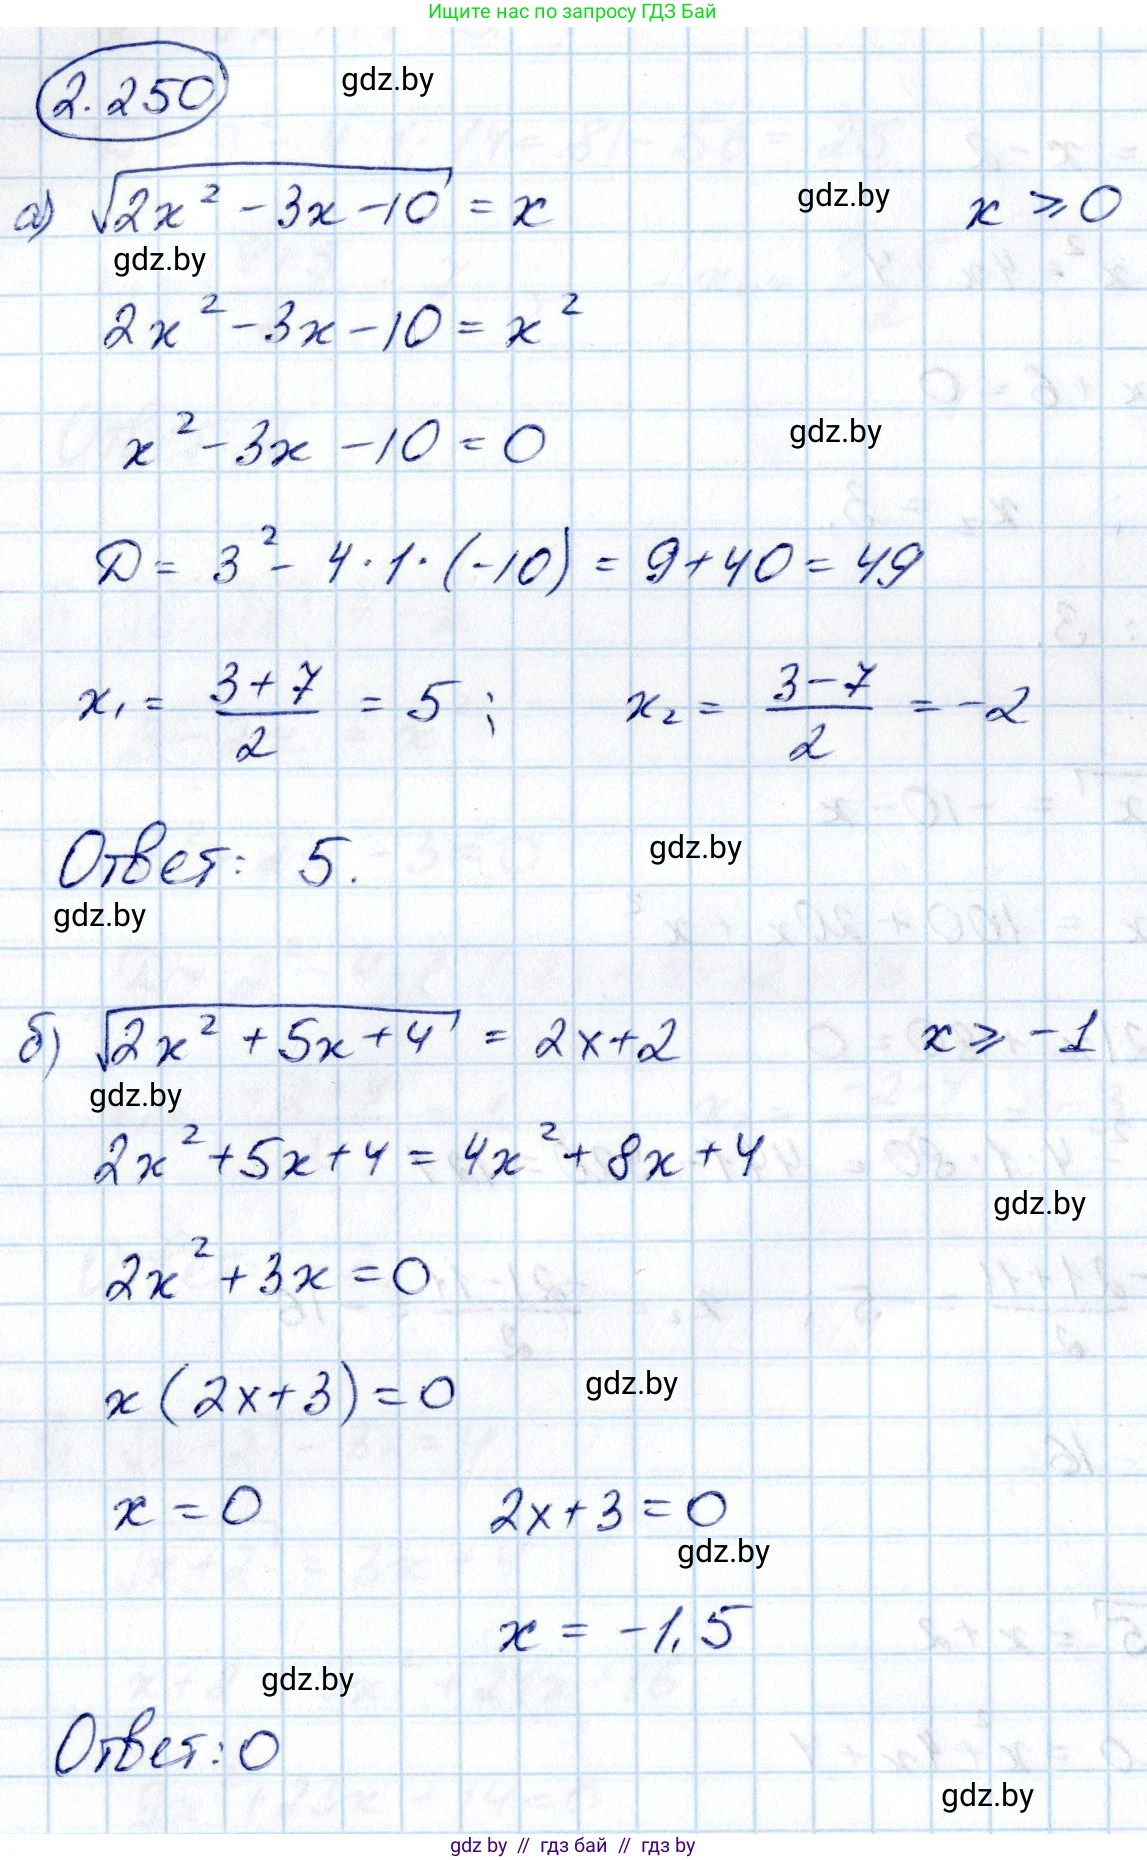 Ищите нас по запросу ГДЗ Бай
2.250
gdz.by
а) √(2x² - 3x - 10) = x gdz.by x ⩾ 0
gdz.by
2x² - 3x - 10 = x²
x² - 3x - 10 = 0 gdz.by
D = 3² - 4 · 1 · (-10) = 9 + 40 = 49
x₁ = (3 + 7)/2 = 5 ; x₂ = (3 - 7)/2 = -2
Ответ: 5. gdz.by
gdz.by
б) √(2x² + 5x + 4) = 2x + 2 x ⩾ -1
gdz.by
2x² + 5x + 4 = 4x² + 8x + 4
gdz.by
2x² + 3x = 0
x (2x + 3) = 0 gdz.by
x = 0 2x + 3 = 0
gdz.by
x = -1,5
gdz.by
Ответ: 0
gdz.by
gdz by // гдз бай // гдз by